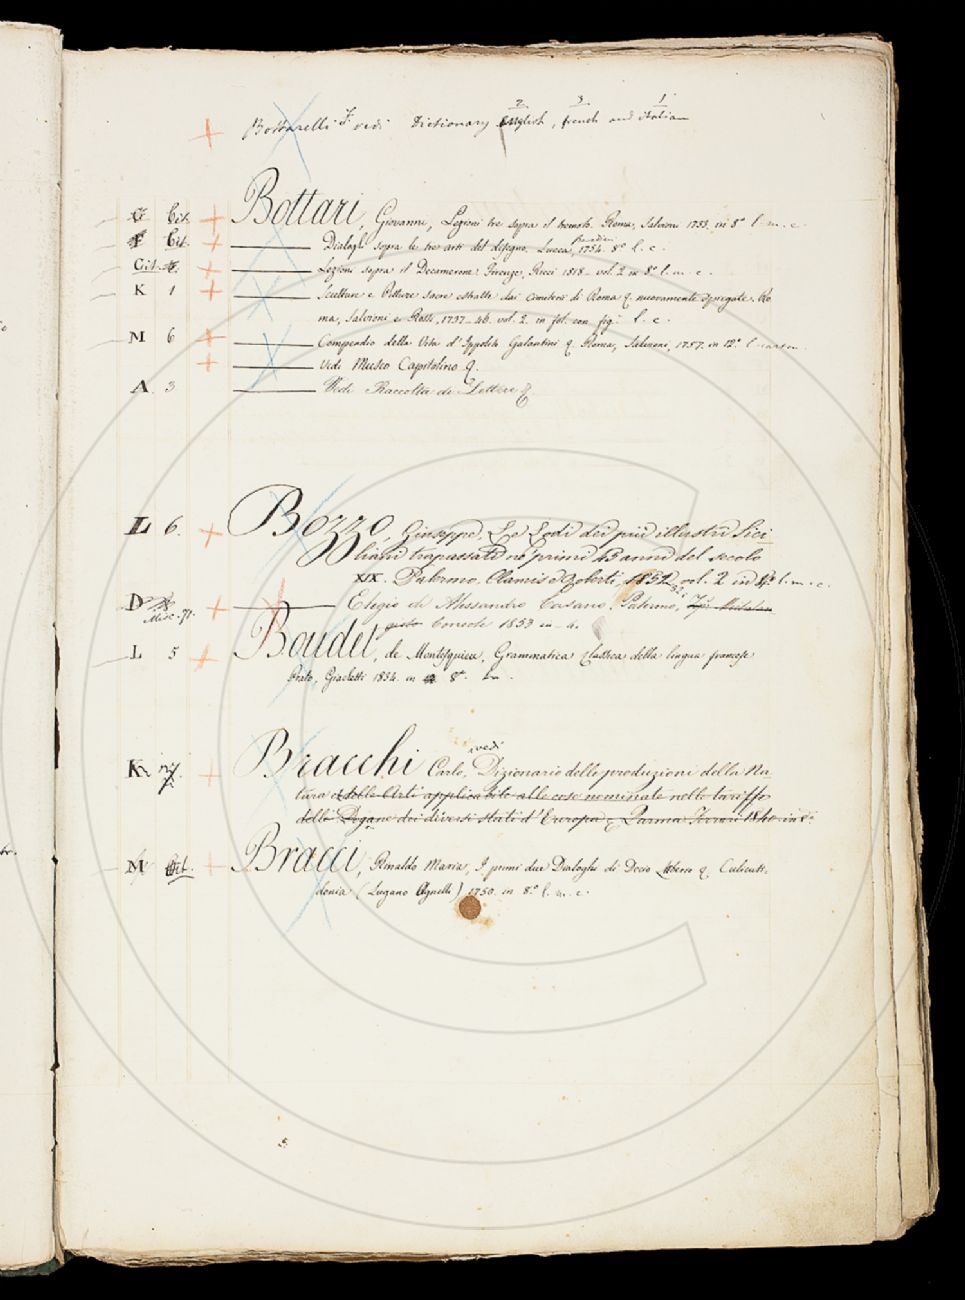 Bottarelli F. vedi Dictionary English, french and italian
2 3 1
Bottari, Giovanni, Lezioni tre sopra il tremoto. Roma, Salvioni 1733. in 8° l. m. c.
Dialoghi sopra le tre arti del disegno. Lucca, 1754. 8° l. c.
Lezioni sopra il Decamerone. Firenze, Ricci 1818. vol. 2 in 8° l. m. c.
K 1 Sculture e Pitture sacre estratte dai cimiteri di Roma &. nuovamente spiegate. Ro
ma, Salvioni e Rossi, 1737-46. vol. 2. in fol. con fig. l. c.
M 6 Compendio della Vita d'Ippolito Galantini &. Roma, Salvioni, 1757. in 12° l.
vedi Museo Capitolino &.
A 3 Vedi Raccolta di Lettere &
L 6. Bozzo, Giuseppe, Le Lodi dei più illustri Sici
liani trapassati ne' primi 45 anni del secolo
XIX. Palermo, Clamis e Roberti, 1851 vol. 2 in 4° l. m. c.
D Elogio di Alessandro Casano. Palermo,
Misc. 77. 1853 in 4.
L 5 Boudet, de Montesquieu, Grammatica classica della lingua francese
Prato, Giachetti 1834. in 8°
vedi
K Bracchi Carlo, Dizionario delle produzioni della Na-
tura e delle Arti applicabile alle cose nominate nelle tariffe
delle Dogane dei diversi stati d'Europa & Parma 1840 in 8°
M Bracci, Rinaldo Maria, I primi due Dialoghi di Decio Laberio &. Culicutt-
donia (Lugano Agnelli) 1750. in 8° l. m. c.